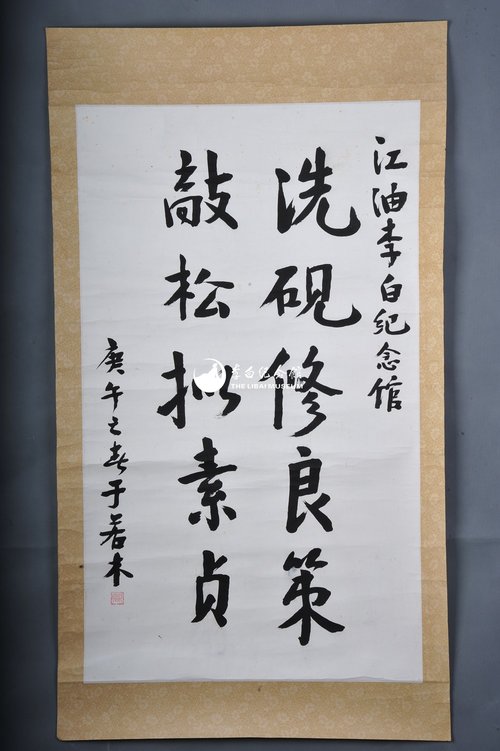 江油李白纪念馆
洗砚修良策
敲松拟素贞
庚午之春于若木
李白纪念馆
THE LIBAI MUSEUM